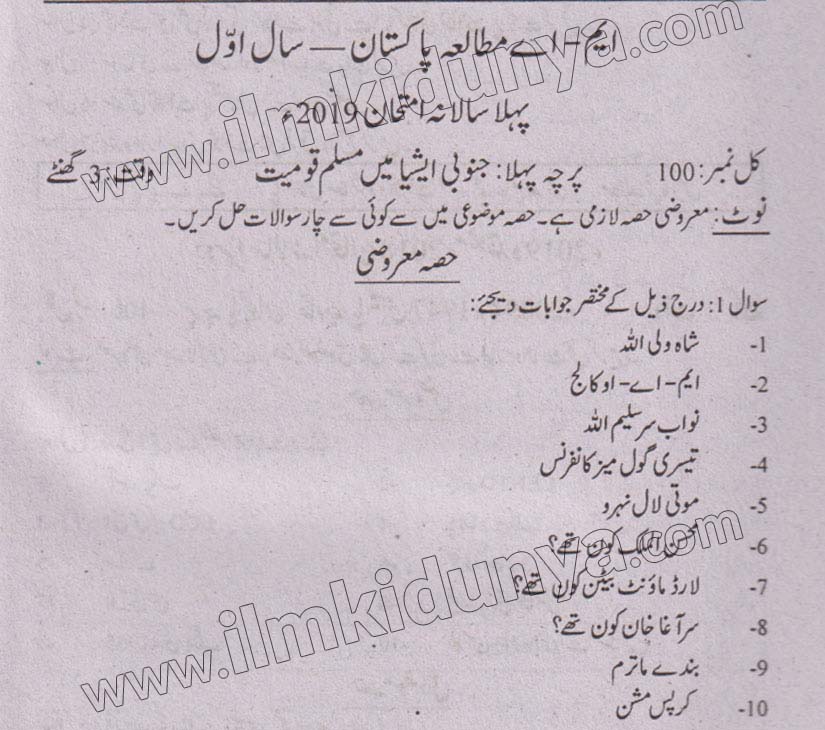 ایم-اے مطالعہ پاکستان — سال اوّل
پہلا سالانہ امتحان 2019ء
کل نمبر: 100 پرچہ پہلا: جنوبی ایشیا میں مسلم قومیت وقت: 3 گھنٹے
نوٹ: معروضی حصہ لازمی ہے۔ حصہ موضوعی میں سے کوئی سے چار سوالات حل کریں۔
حصہ معروضی
سوال 1: درج ذیل کے مختصر جوابات دیجئے:
1- شاہ ولی اللہ
2- ایم-اے-او کالج
3- نواب سر سلیم اللہ
4- تیسری گول میز کانفرنس
5- موتی لال نہرو
6- محسن الملک کون تھے؟
7- لارڈ ماؤنٹ بیٹن کون تھے؟
8- سر آغا خان کون تھے؟
9- بندے ماترم
10- کرپس مشن
www.ilmkidunya.com
www.ilmkidunya.com